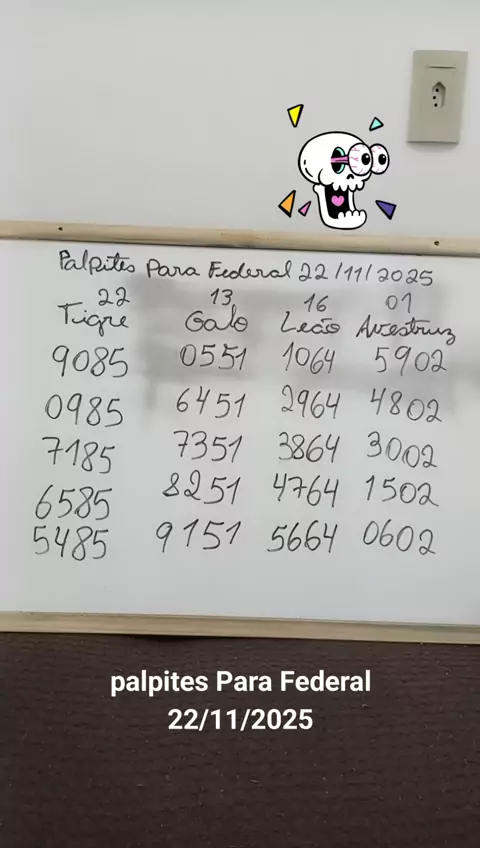 Palpites Para Federal 22/11/2025
22 13 16 01
Tigre Galo Leão Avestruz
9085 0551 1064 5902
0985 6451 2964 4802
7185 7351 3864 3002
6585 8251 4764 1502
5485 9151 5664 0602
palpites Para Federal
22/11/2025